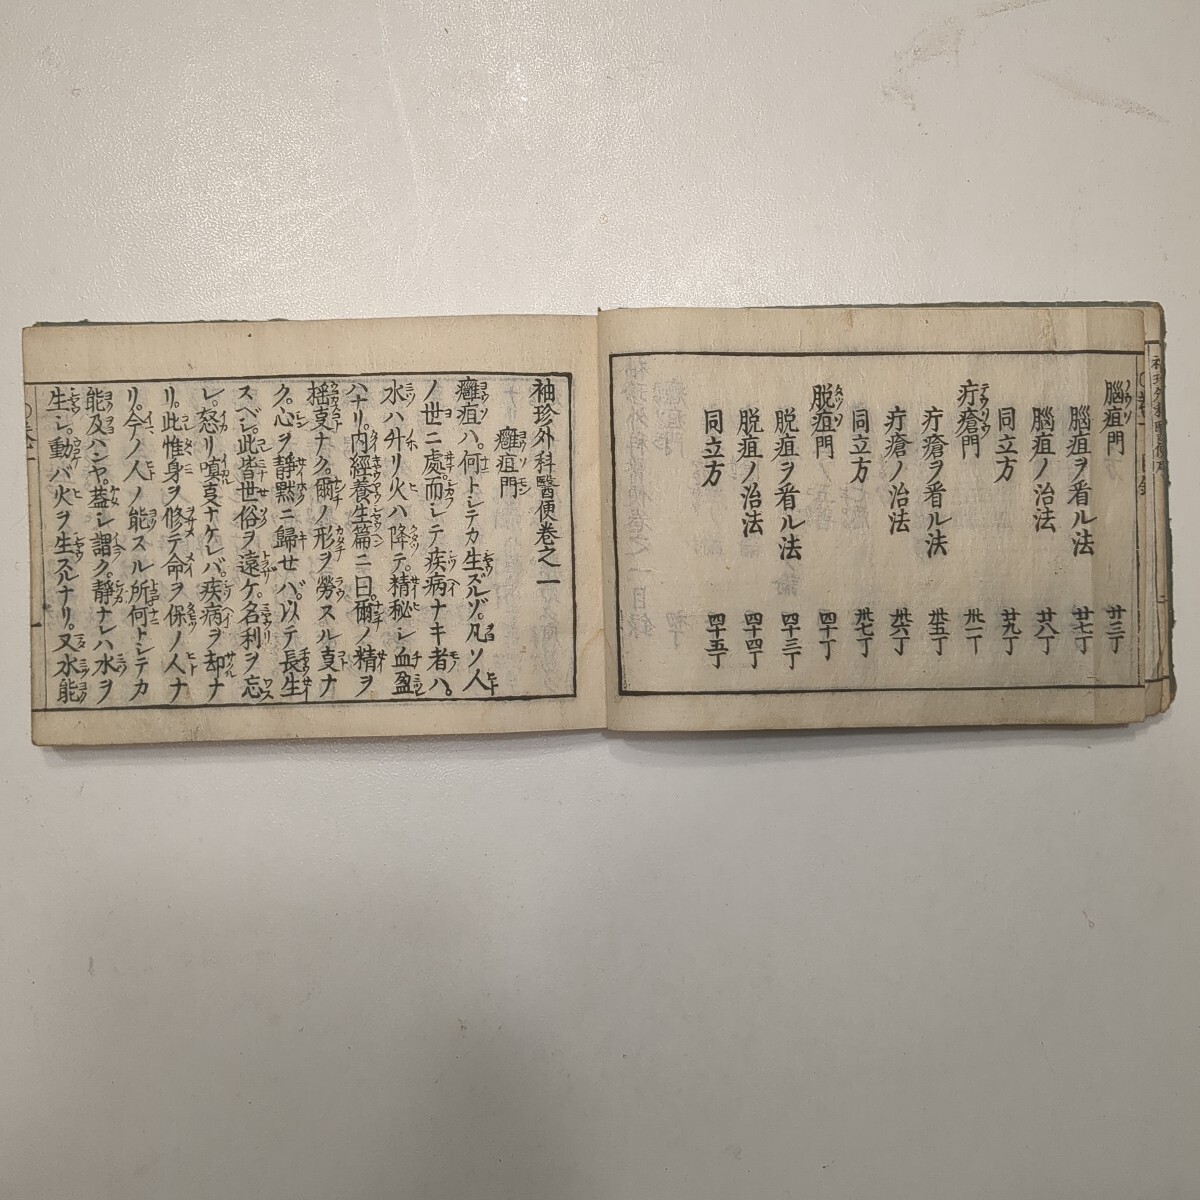 腦疽門 廿三丁
腦疽ヲ看ル法 廿七丁
腦疽ノ治法 廿八丁
同立方 廿九丁
疔瘡門 卅一丁
疔瘡ヲ看ル法 卅五丁
疔瘡ノ治法 卅六丁
同立方 卅七丁
脱疽門 四十丁
脱疽ヲ看ル法 四十三丁
脱疽ノ治法 四十四丁
同立方 四十五丁
袖珍外科醫便巻之一
癰疽門
癰疽ハ。何トシテカ生ズルゾ。凡ソ人
ノ世ニ處。而シテ疾病ナキ者ハ。
水ハ升リ火ハ降テ。精秘シ血盈
ハナリ。内經養生篇ニ曰。爾ノ精ヲ
揺叓ナク。爾ノ形ヲ勞スル叓ナ
ク。心ヲ靜黙ニ歸セバ。以テ長生
スベシ。此皆世俗ヲ遠ケ。名利ヲ忘
レ。怒リ嗔叓ナケレバ。疾病ヲ却ナ
リ。此惟身ヲ修テ命ヲ保ノ人ナ
リ。今ノ人ノ能スル所何トシテカ
能及ハンヤ。蓋シ謂ク。靜ナレハ水ヲ
生シ。動バ火ヲ生スルナリ。又水能